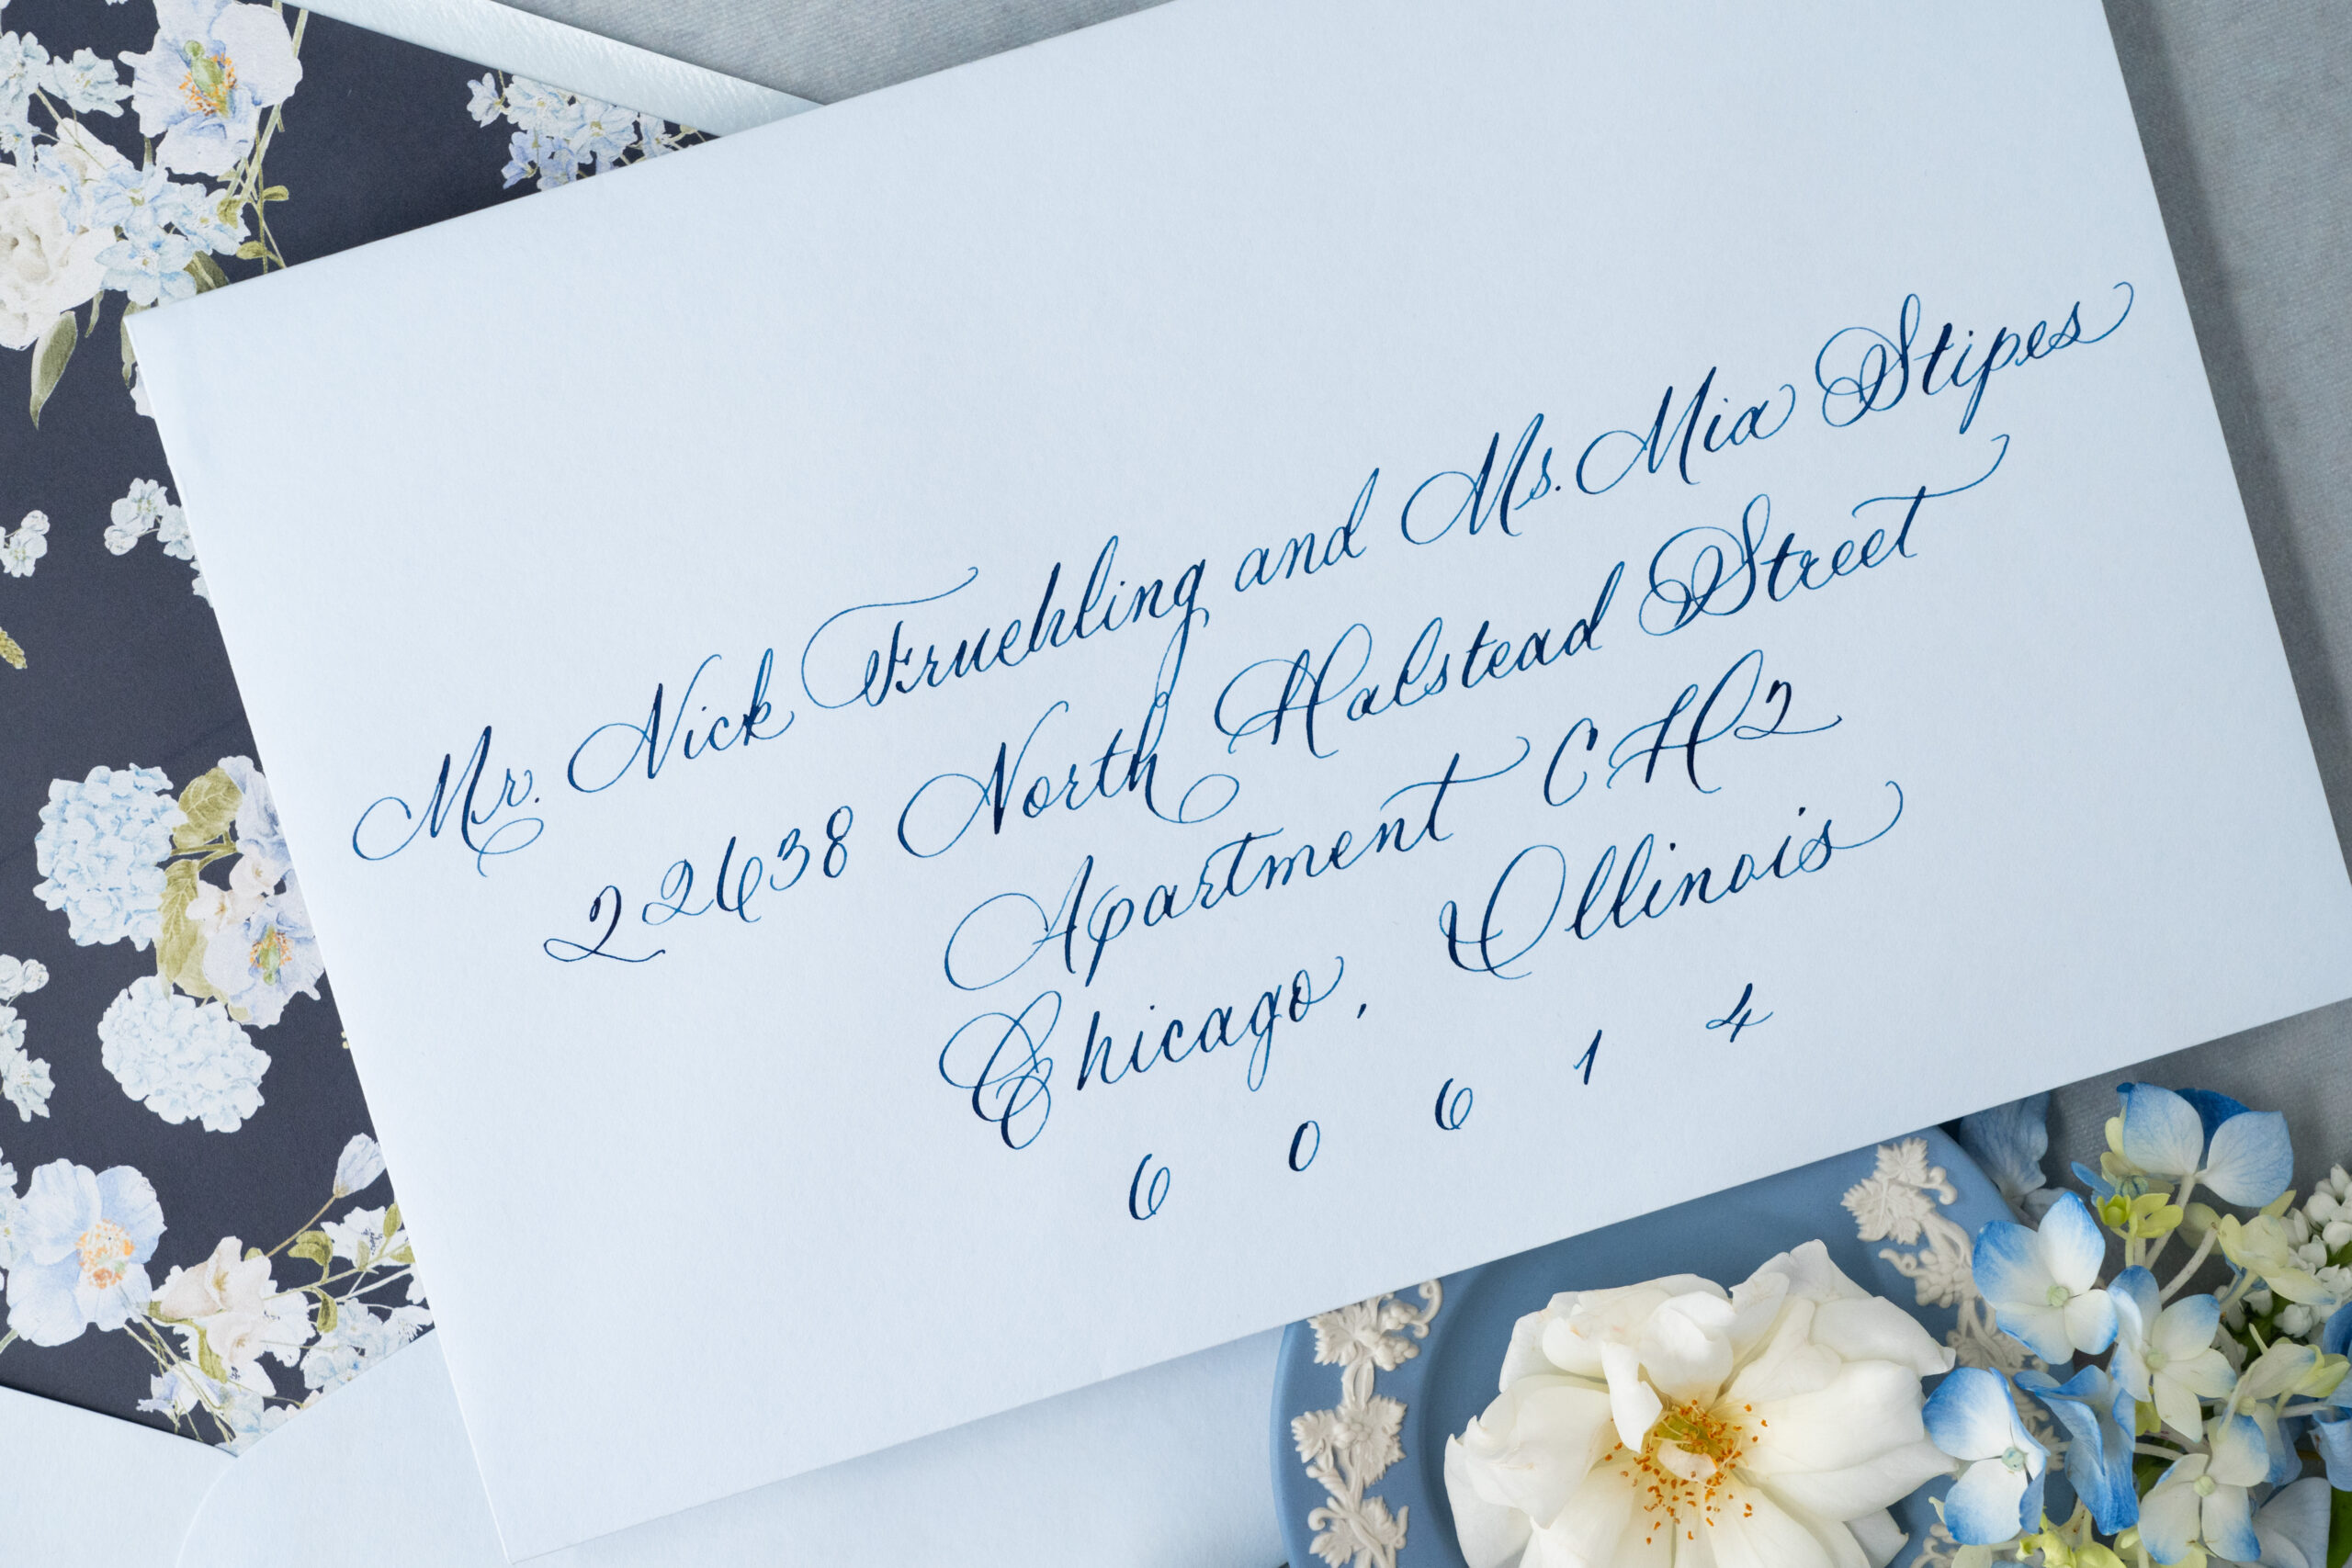 Mr. Nick Fruehling and Ms. Mia Stipes
22638 North Halstead Street
Apartment CH2
Chicago, Illinois
6 0 6 1 4